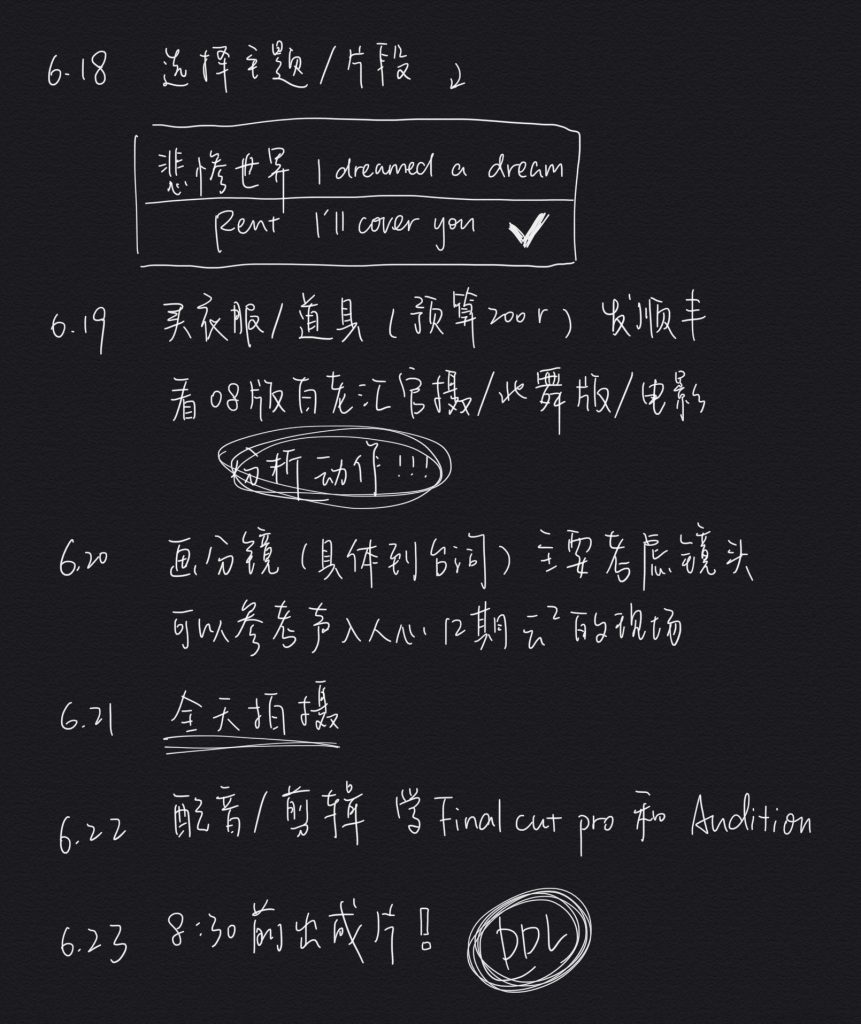 6.18 选择主题/片段
悲惨世界 I dreamed a dream
Rent I'll cover you ✓
6.19 买衣服/道具(预算200r)发顺丰
看08版百老汇官摄/北舞版/电影
分析动作!!!
6.20 画分镜(具体到台词)主要考虑镜头
可以参考声入人心12期云²的现场
6.21 全天拍摄
6.22 配音/剪辑 学Final cut pro 和 Audition
6.23 8:30前出成片! DDL